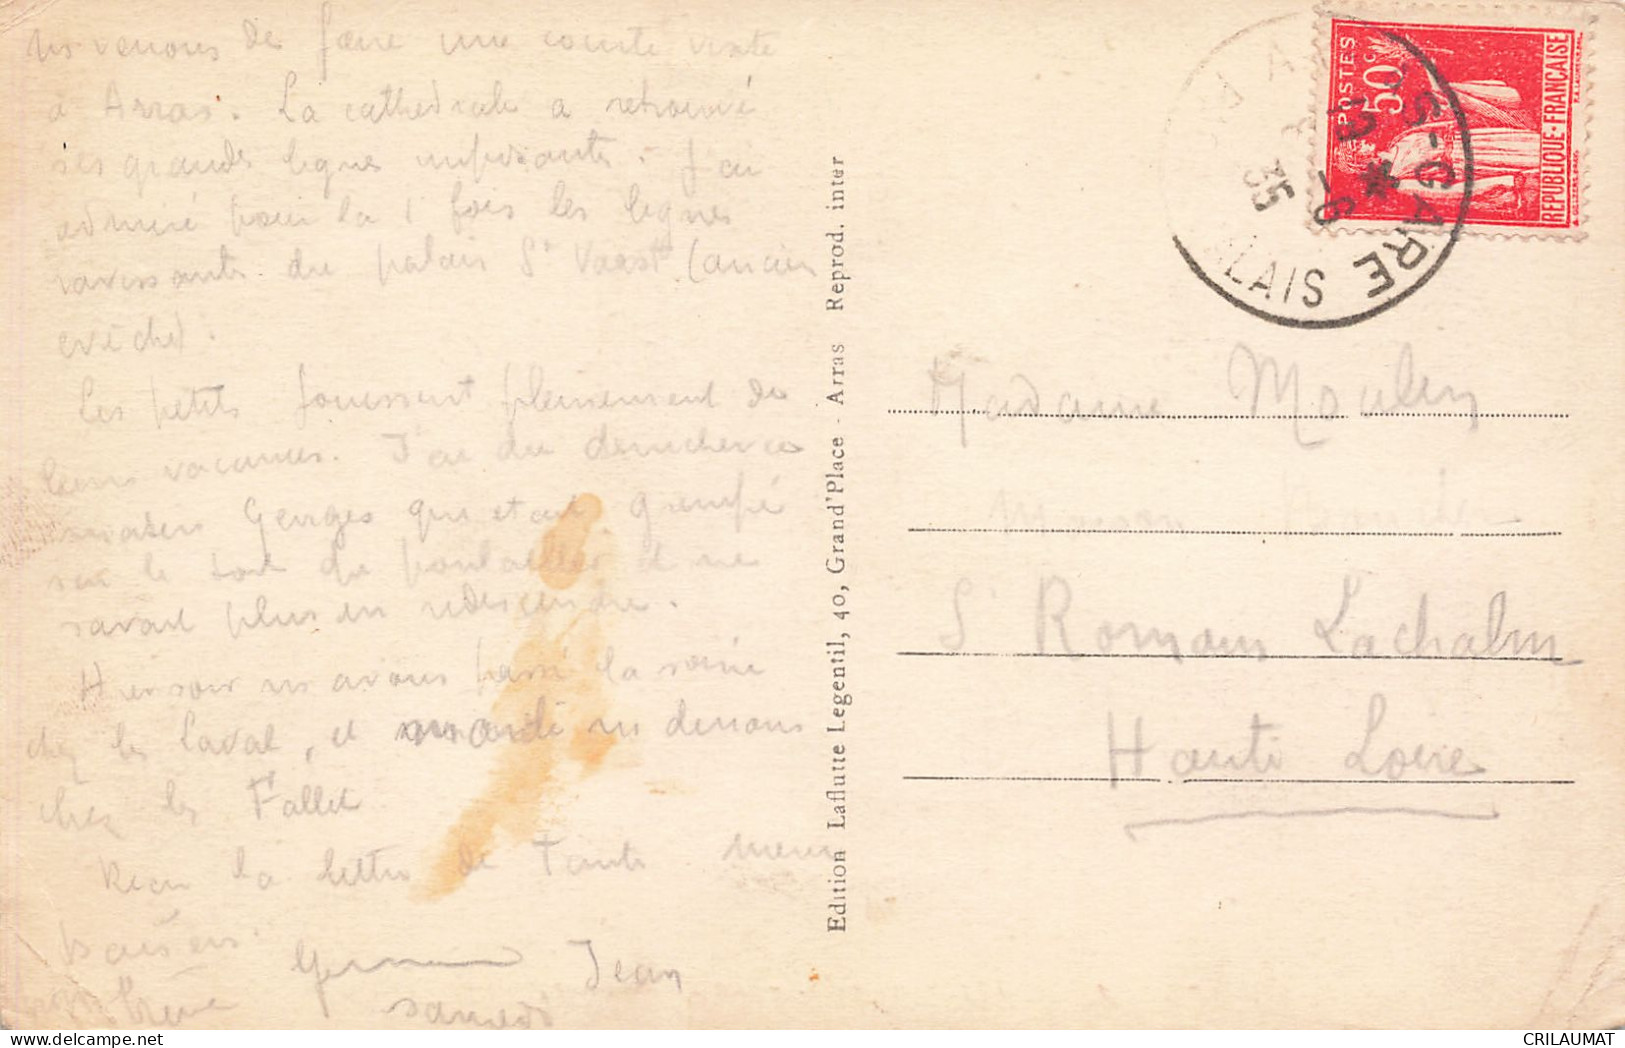 ns venons de faire une courte visite
à Arras. La cathédrale a retrouvé
ses grandes lignes imposantes. J'ai
admiré pour la 1 fois les lignes
ravissantes du palais St Vaast (ancien
evêché).
Les petits jouissent pleinement de
leurs vacances. J'ai du denicher ce
matin Georges qui etait grimpé
sur le toit du poulailler et ne
savait plus en redescendre.
Hier soir ns avons passé la soirée
chez les Laval, et mardi ns dinons
chez les Fallet
Reçu la lettre de Tante
baisers.
Germaine Jean
samedi
Edition Laflutte Legentil, 40, Grand'Place - Arras Reprod. inter
POSTES
50c
REPUBLIQUE-FRANÇAISE
S-GARE
ALAIS
13
*
-6
35
Madame Moulin
Maison
St Romain Lachalm
Haute Loire
CRILAUMAT